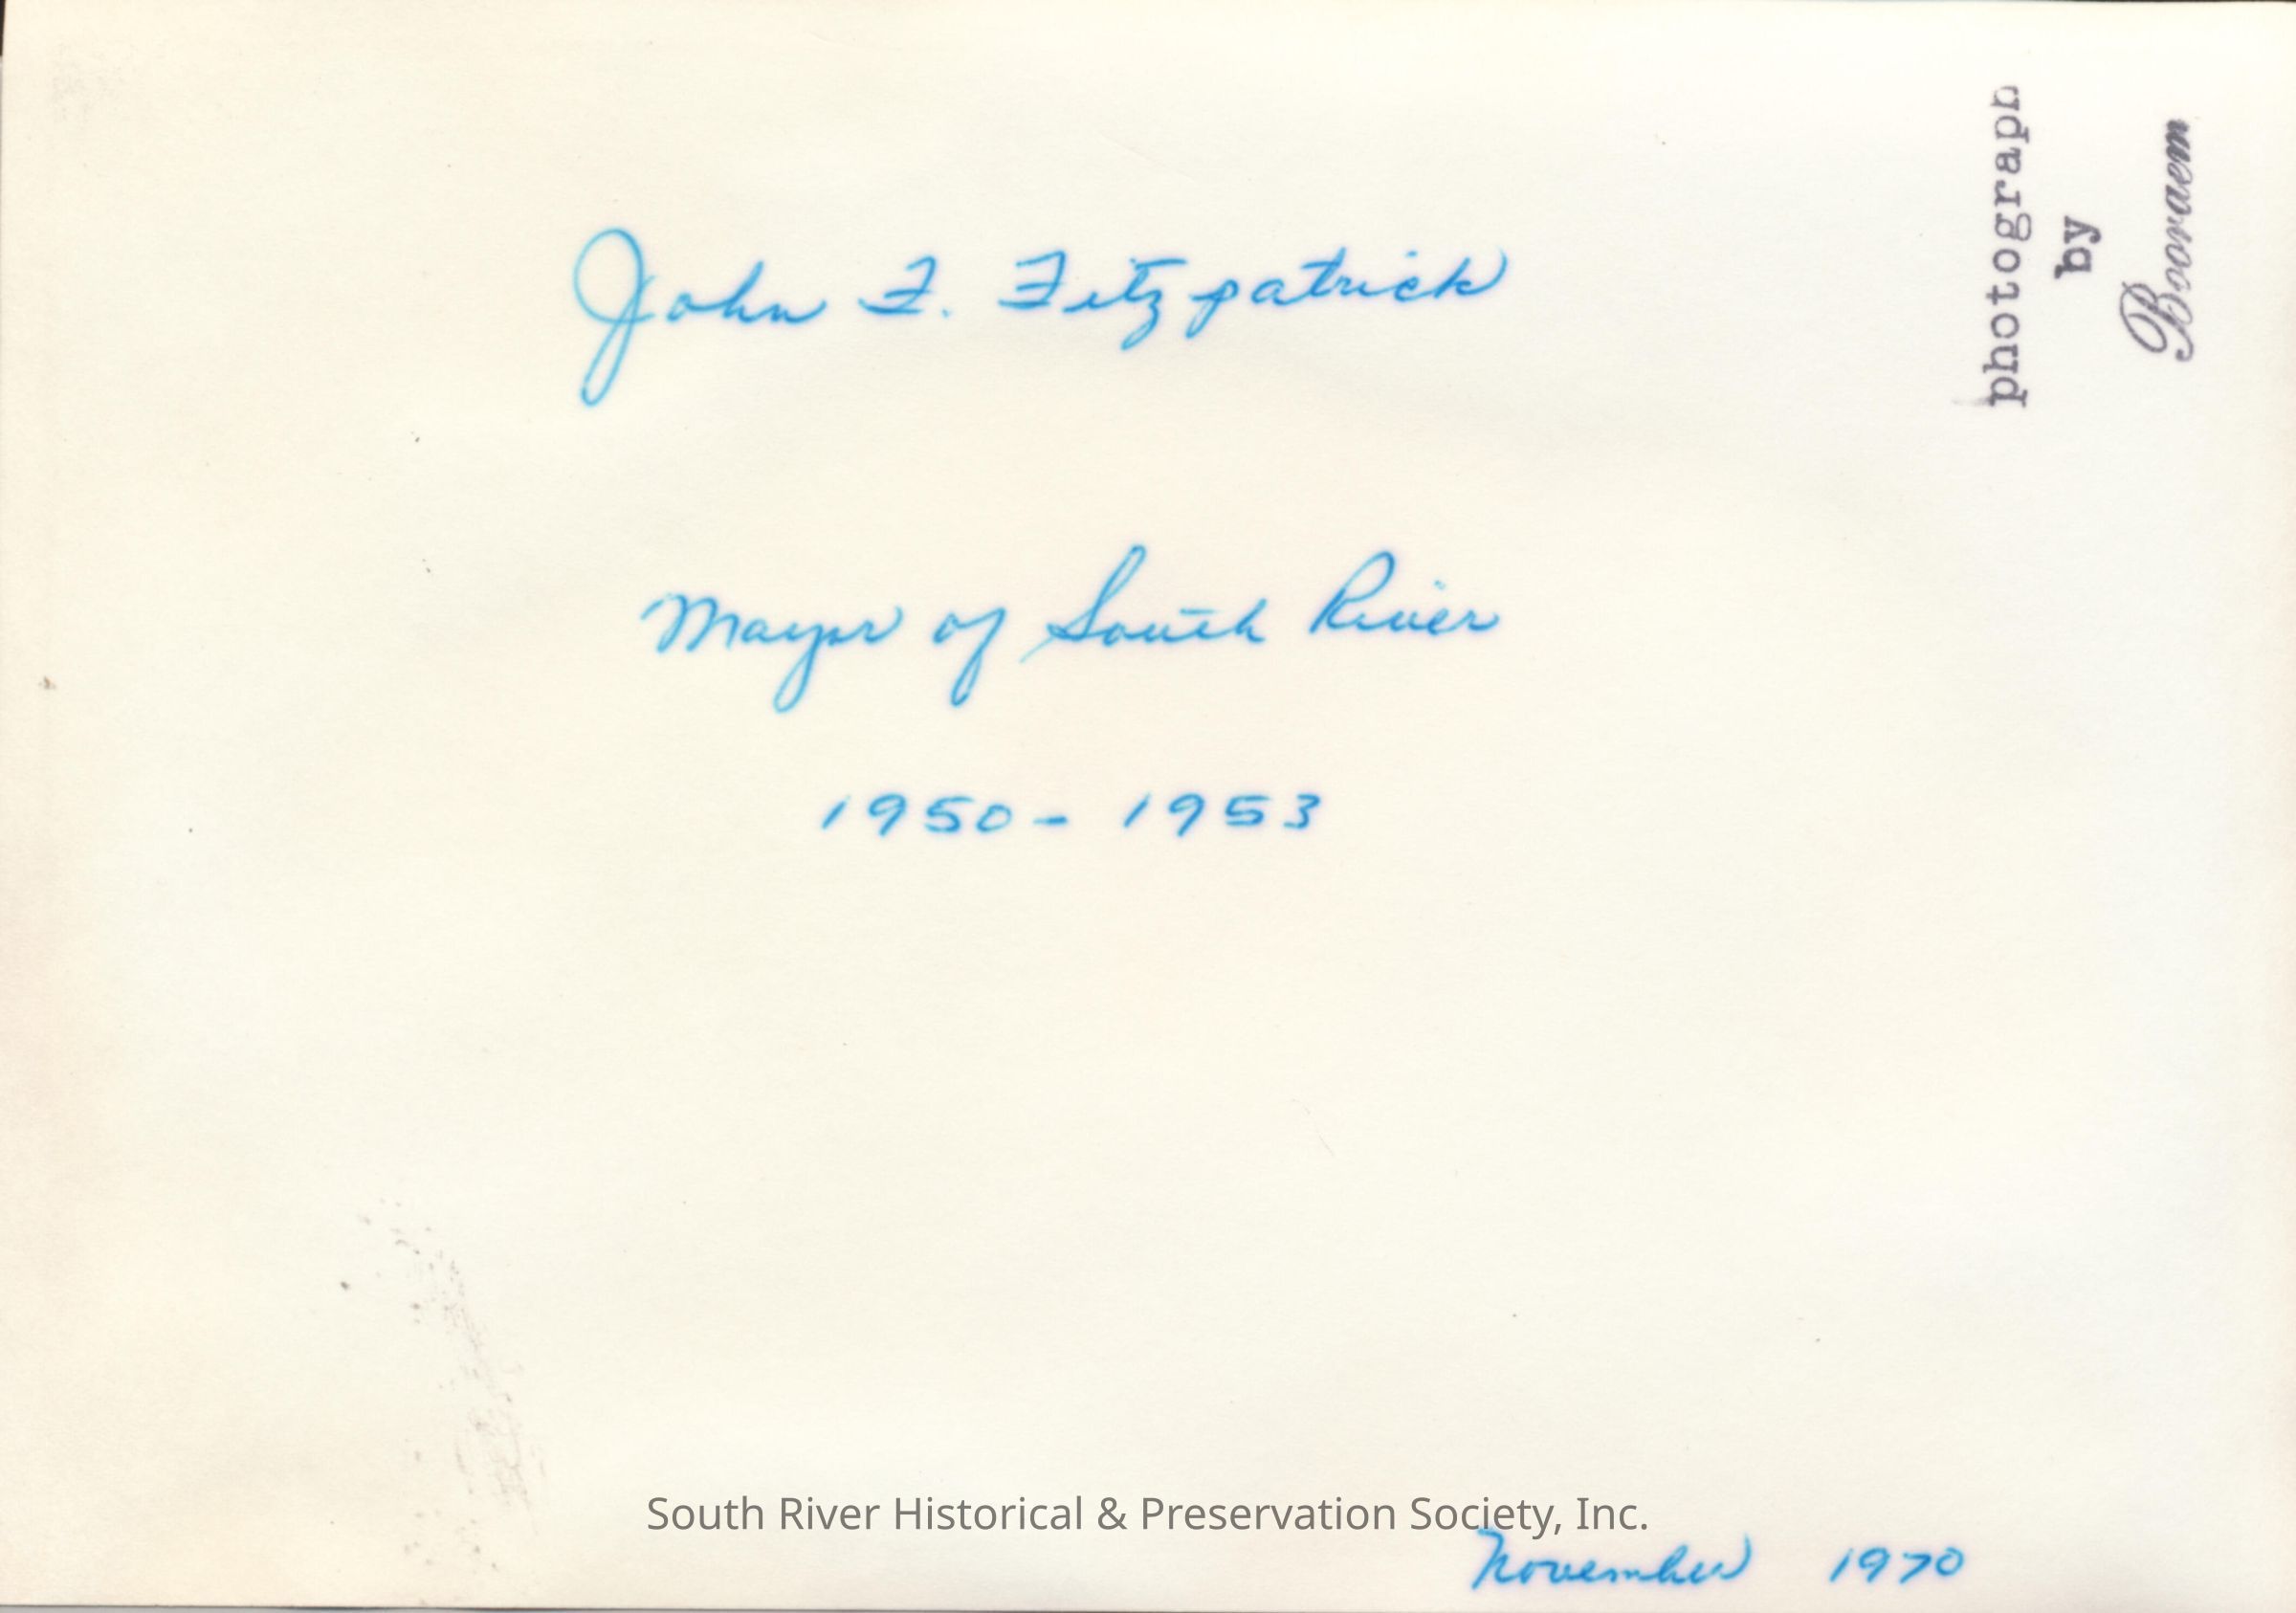 John F. Fitzpatrick
Mayor of South River
1950 - 1953
photograph
by
Booraem
South River Historical & Preservation Society, Inc.
November 1970